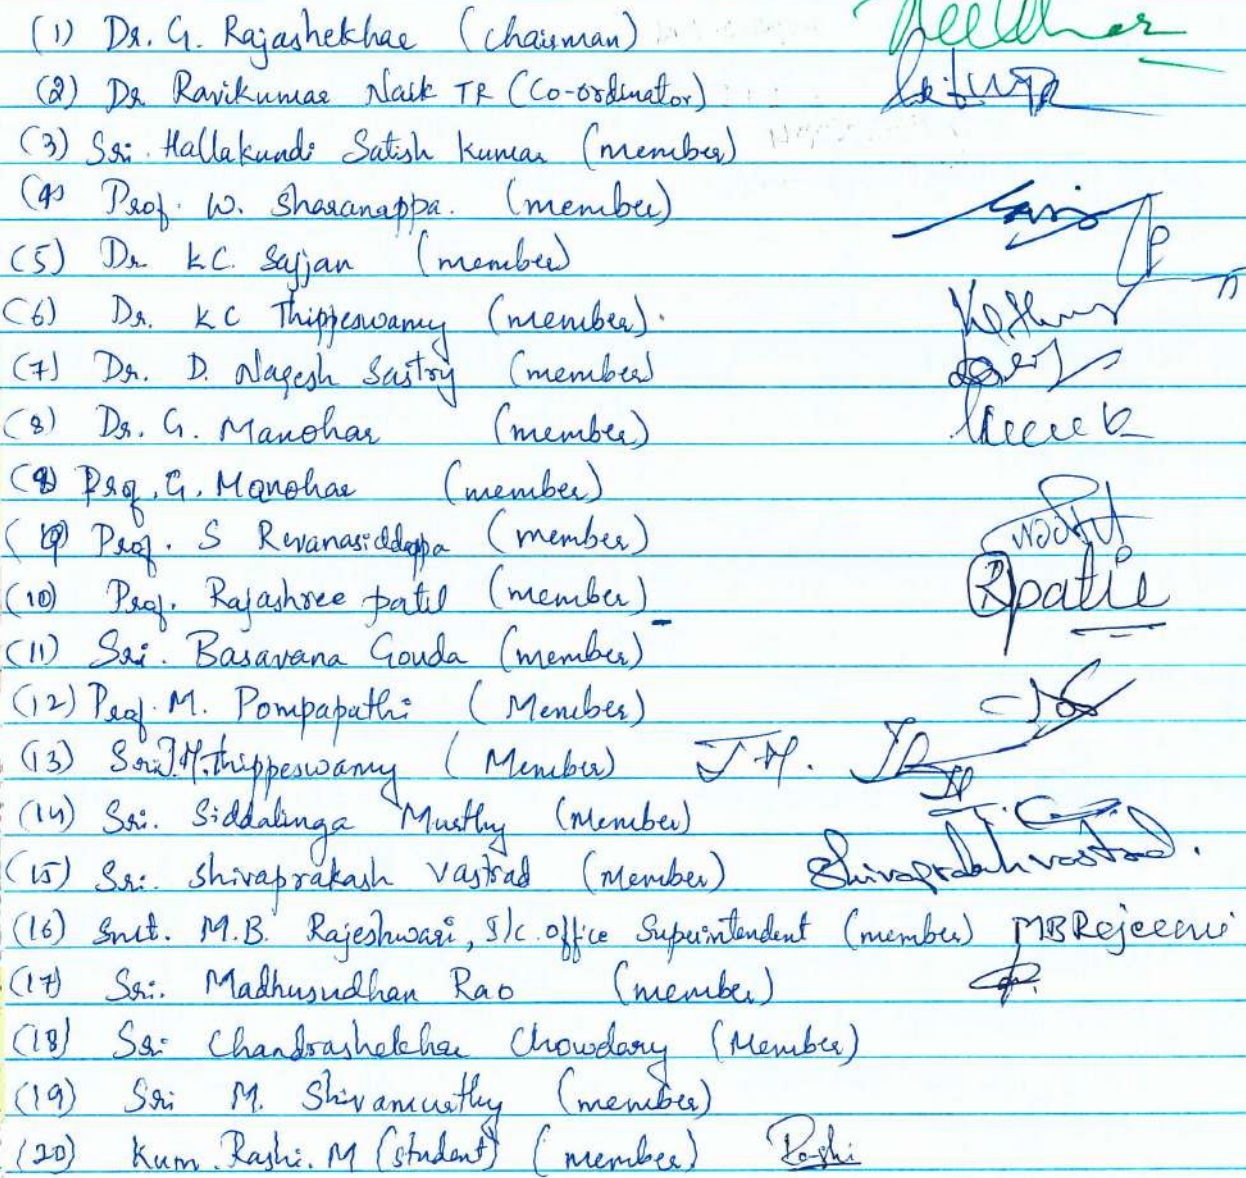 (1) Dr. G. Rajashekhar (chairman)
(2) Dr Ravikumar Naik TR (Co-ordinator)
(3) Sri. Hallakundi Satish Kumar (member)
(4) Prof. W. Sharanappa. (member)
(5) Dr K.C. Sajjan (member)
(6) Dr. K C Thippeswamy (member).
(7) Dr. D. Nagesh Sastry (member)
(8) Dr. G. Manohar (member)
(8) Prof. G. Manohar (member)
(9) Prof. S Revanasiddappa (member)
(10) Prof. Rajashree patil (member) Rpatil
(11) Sri. Basavana Gouda (member)
(12) Prof. M. Pompapathi (Member)
(13) Sri J.M. thippeswamy (Member) J.M.
(14) Sri. Siddalinga Murthy (Member)
(15) Sri. Shivaprakash Vastrad (Member) Shivaprakash vastrad.
(16) Smt. M.B. Rajeshwari, I/c. office Superintendent (member) MBRajeewi
(17) Sri. Madhusudhan Rao (member)
(18) Sri Chandrashekhar Chowdary (Member)
(19) Sri M. Shivamurthy (member)
(20) Kum. Rashi. M (student) (member) Rashi